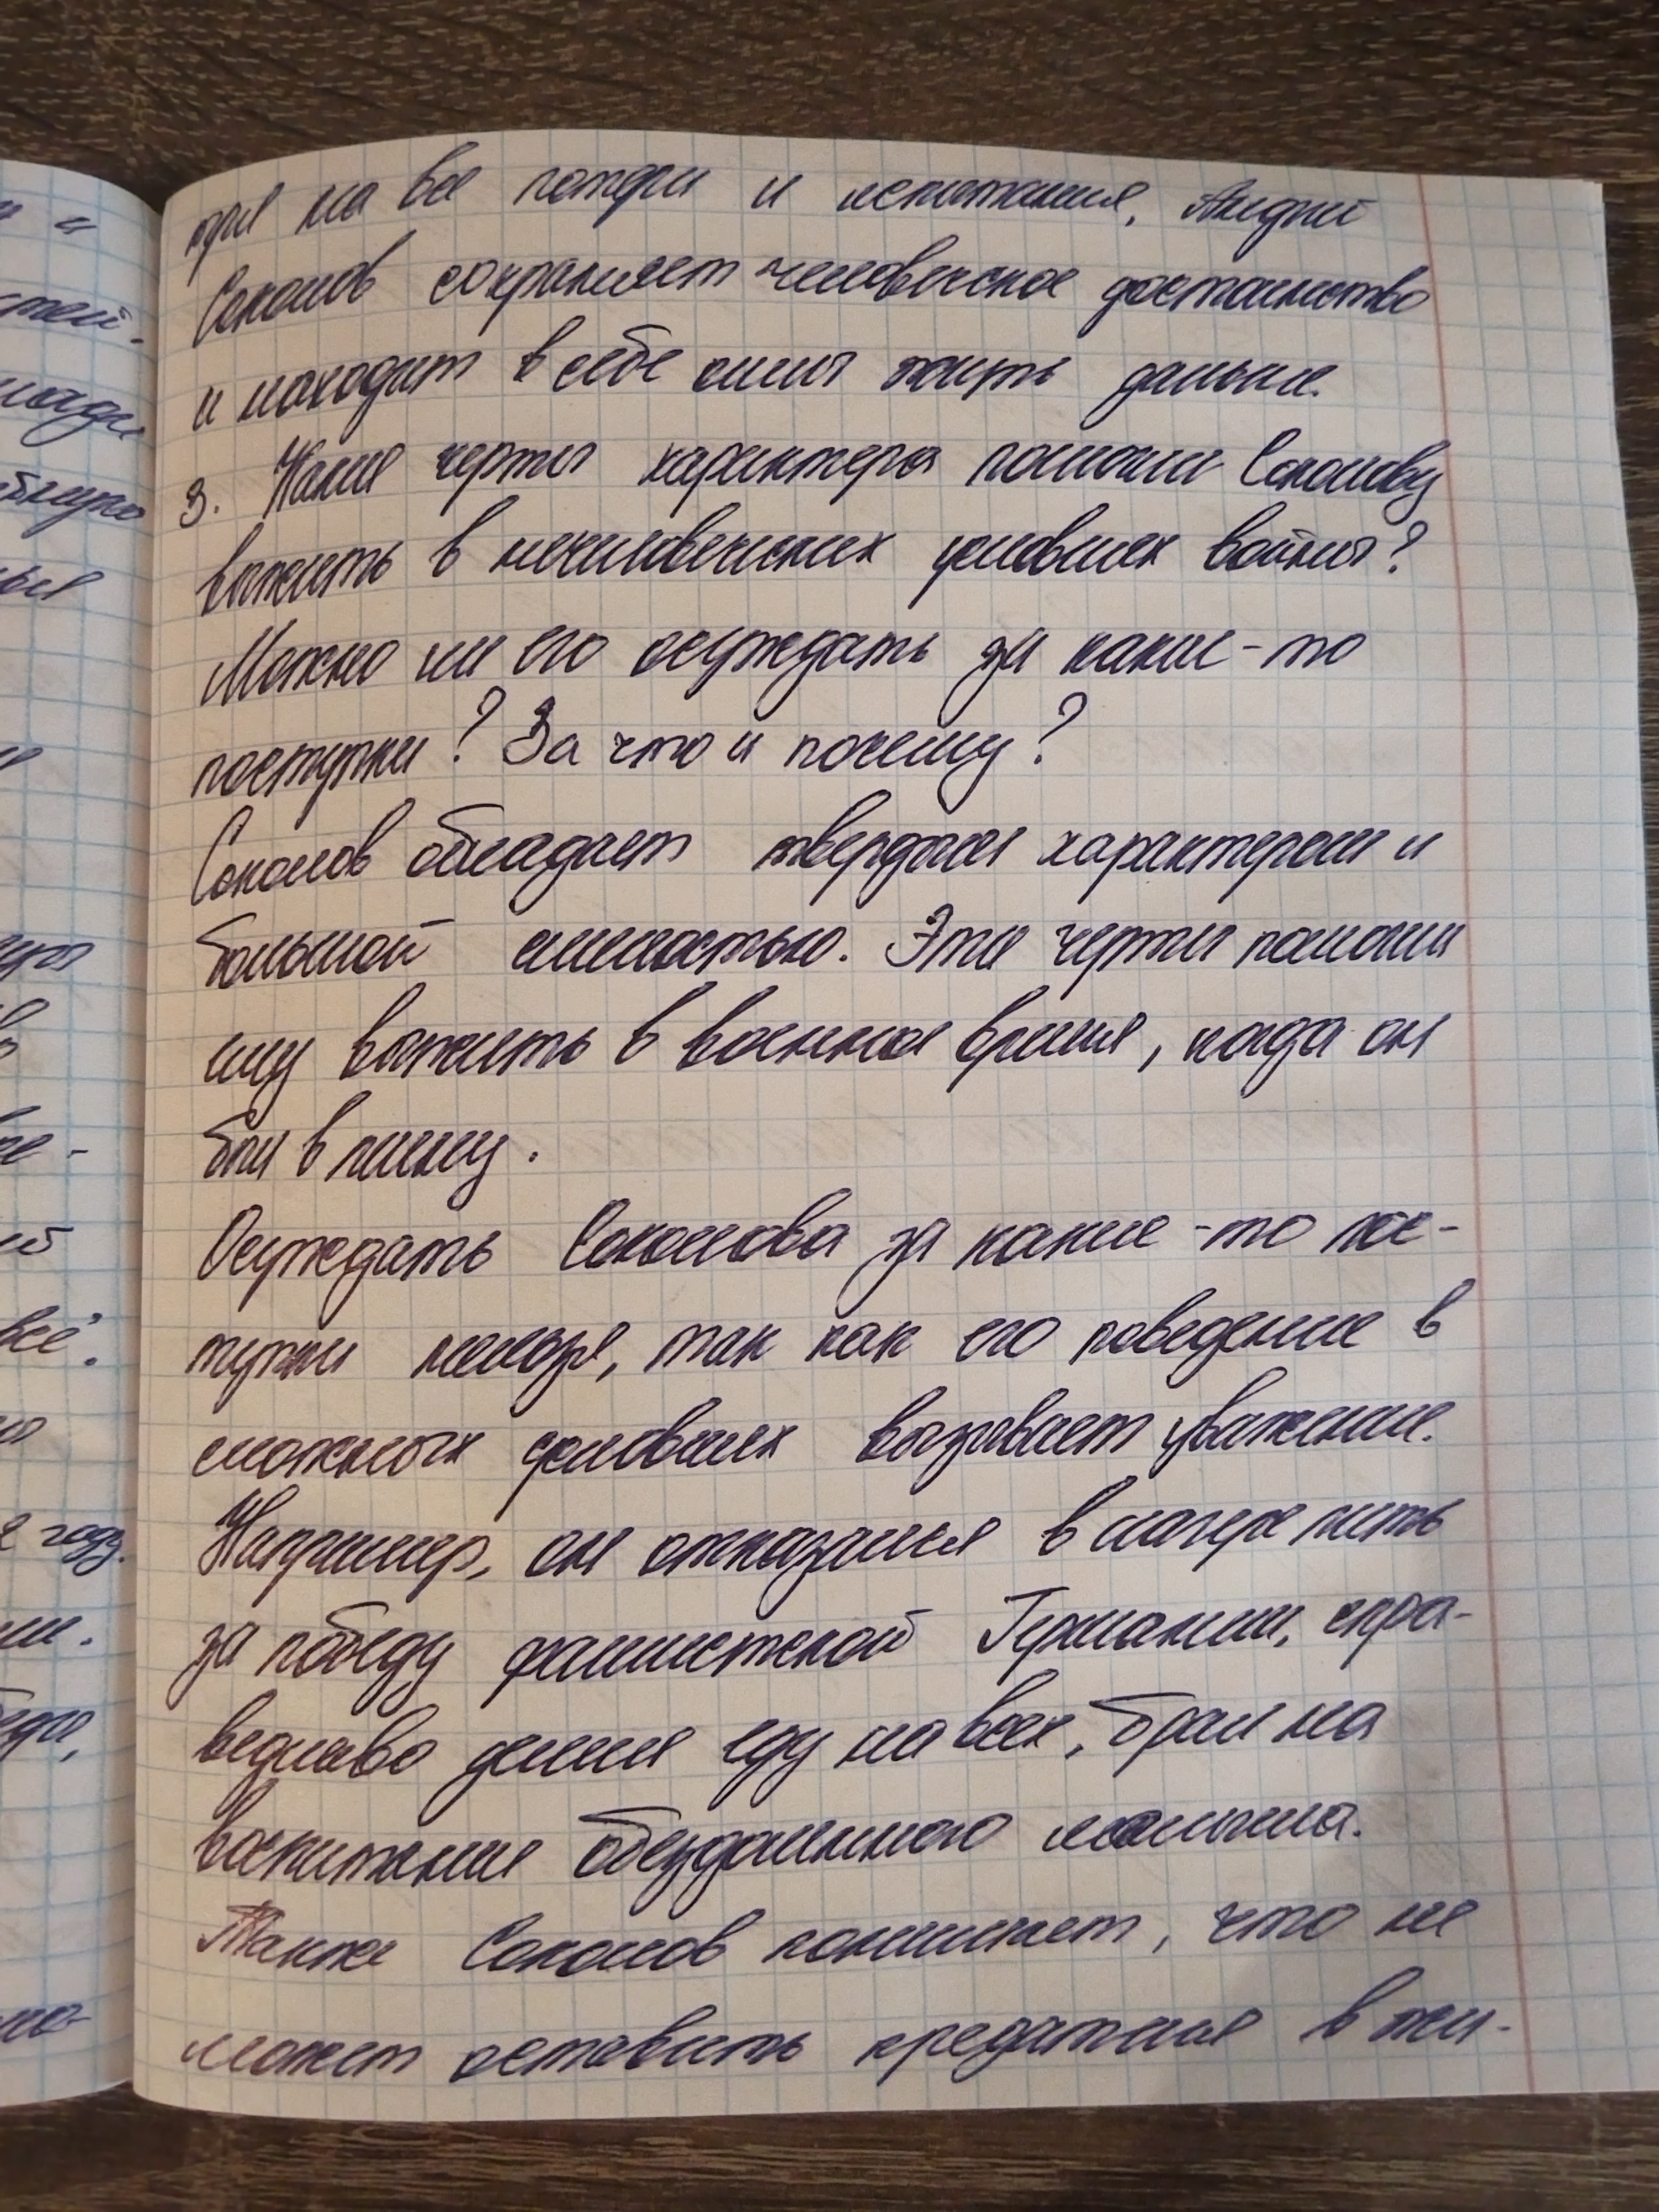 тря на все потери и испытания, Андрей
Соколов сохраняет человеческое достоинство
и находит в себе силы жить дальше.
3. Какие черты характера помогли Соколову
выжить в нечеловеческих условиях войны?
Можно ли его осуждать за какие-то
поступки? За что и почему?
Соколов обладает твердым характером и
большой смелостью. Эти черты помогли
ему выжить в военное время, когда он
был в плену.
Осуждать Соколова за какие-то пос-
тупки нельзя, так как его поведение в
сложных условиях вызывает уважение.
Например, он отказался в лагере пить
за победу фашистской Германии, спра-
ведливо делил еду на всех, брал на
воспитание обездоленного мальчика.
Также Соколов понимает, что не
может оставить предателя в жи-